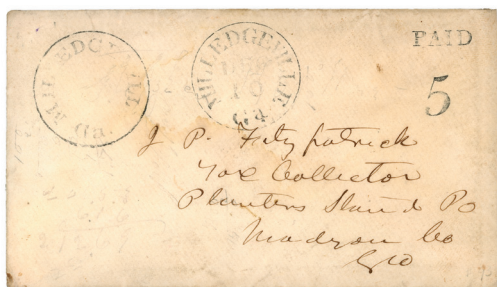 MILLEDGEVILLE
Ga.
MILLEDGEVILLE
10
Ga.
PAID
5
J P. Fitzpatrick
Tax Collector
Planters Stand Po
Madison Co
Geo